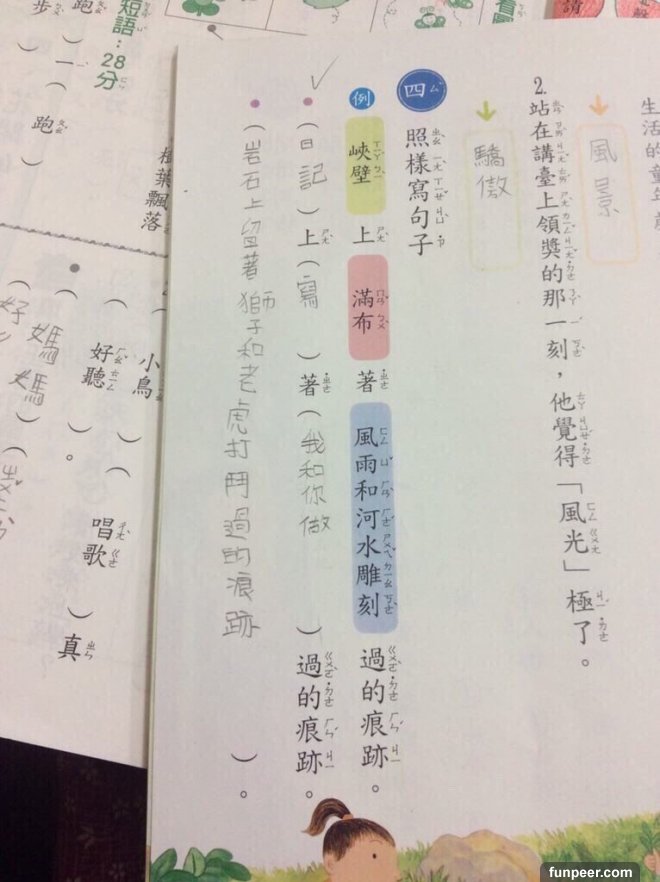 生活的童年
風景
2.站在講臺上領獎的那一刻，他覺得「風光」極了。
驕傲
四 照樣寫句子
例 峽壁上滿布著風雨和河水雕刻過的痕跡。
（日記）上（寫）著（我和你做）過的痕跡。
（岩石上留著獅子和老虎打鬥過的痕跡）。
葉飄落
小鳥
（好聽）（唱歌）真
媽媽
）。
好
短語：28分
跑
步
）一（跑）
funpeer.com